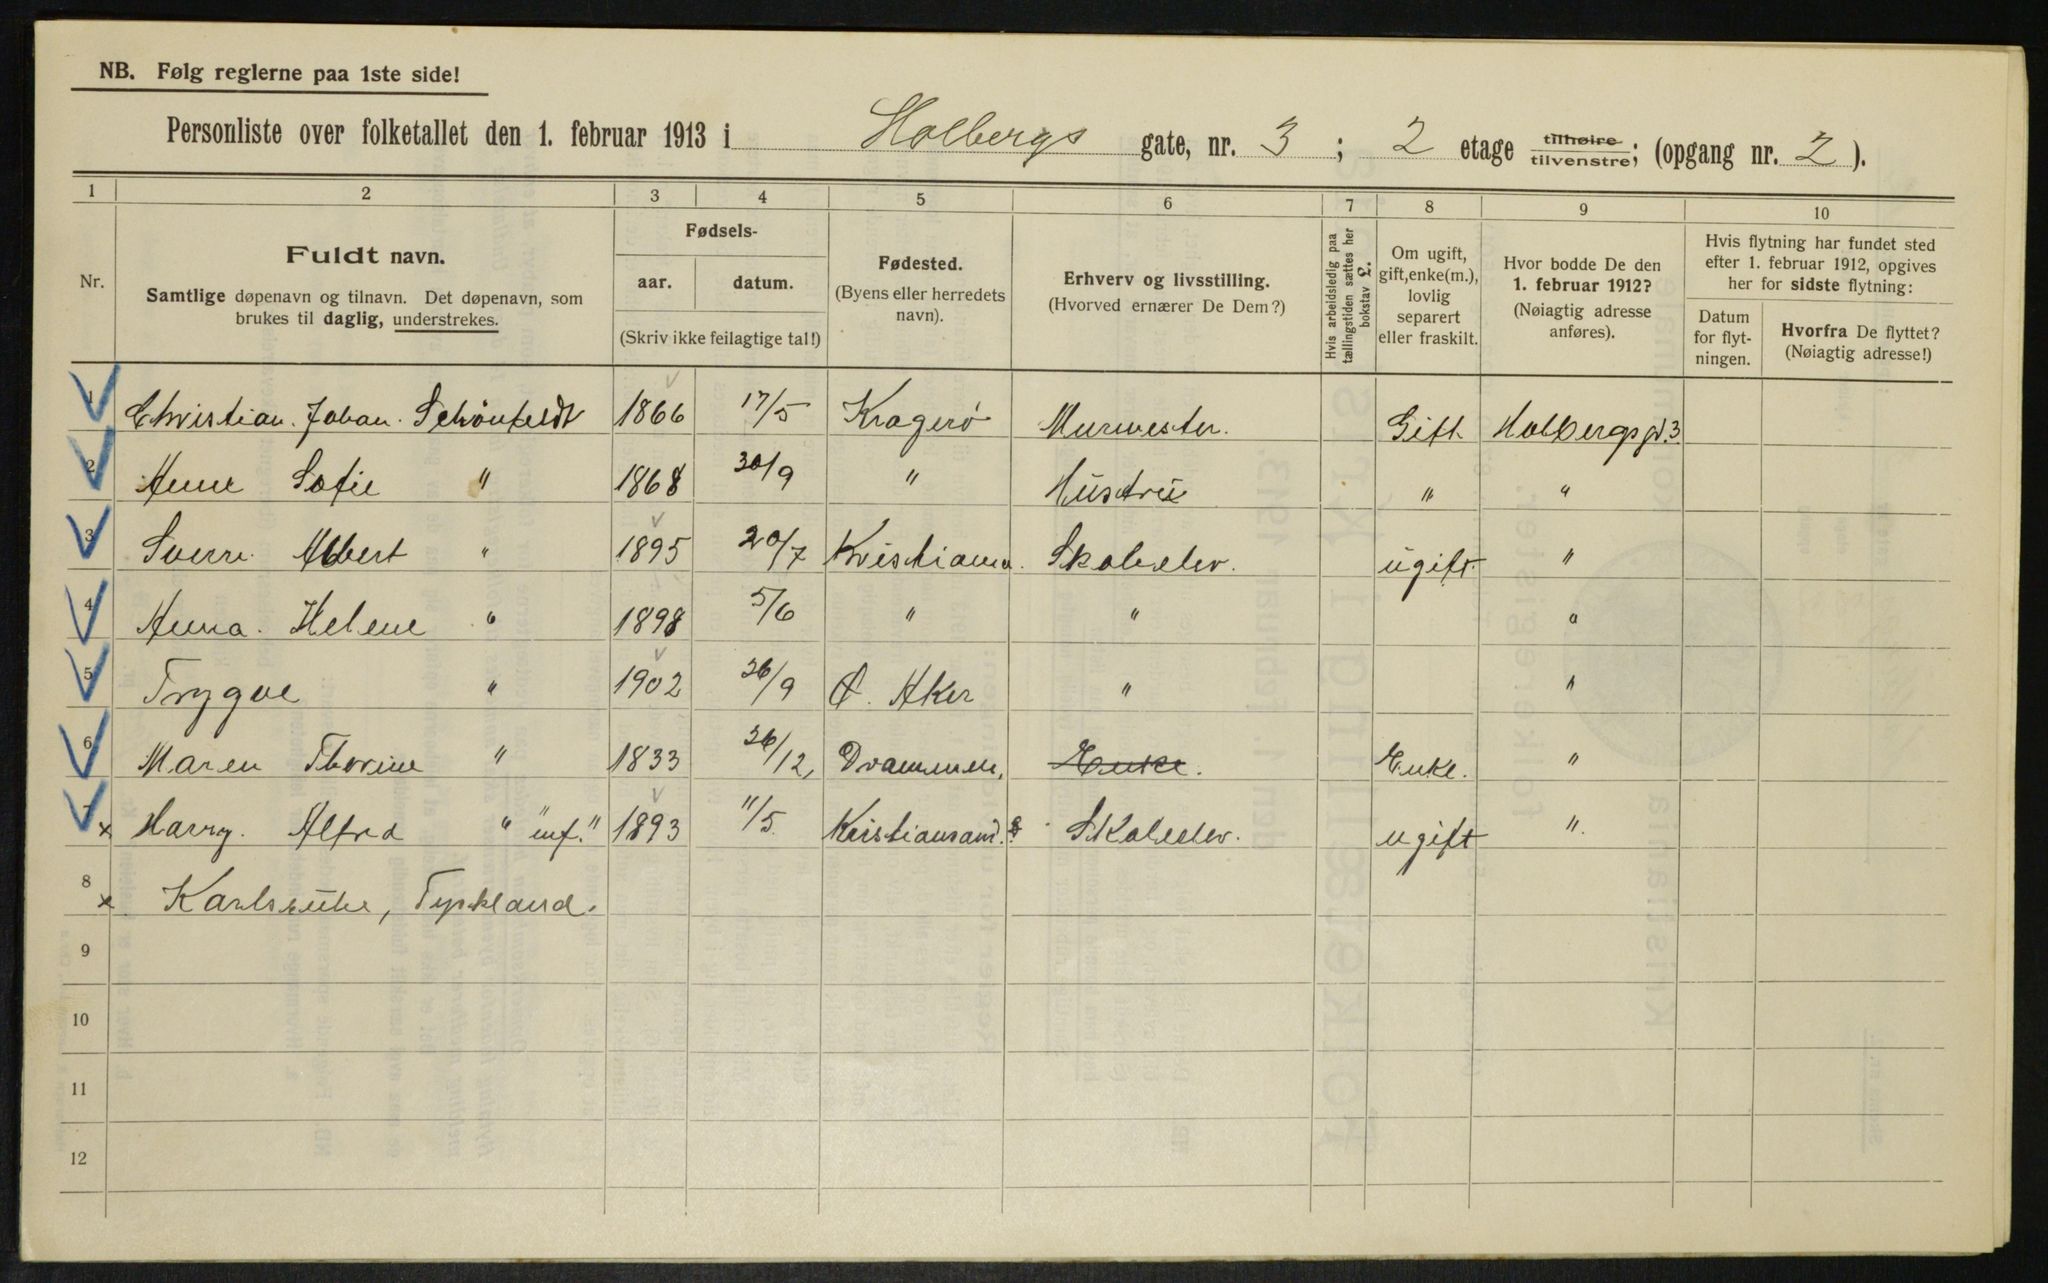 NB. Følg reglerne paa 1ste side!
Personliste over folketallet den 1. februar 1913 i Holbergs gate, nr. 3 ; 2 etage tilhøire tilvenstre; (opgang nr. 2 ).
1 2 3 4 5 6 7 8 9 10
Nr.
Fuldt navn.
Samtlige døpenavn og tilnavn. Det døpenavn, som
brukes til daglig, understrekes.
Fødsels-
aar. datum.
(Skriv ikke feilagtige tal!)
Fødested.
(Byens eller herredets
navn).
Erhverv og livsstilling.
(Hvorved ernærer De Dem?)
Hvis arbeidsledig paa
tællingstiden sættes her
bokstav L.
Om ugift,
gift, enke(m.),
lovlig
separert
eller fraskilt.
Hvor bodde De den
1. februar 1912?
(Nøiagtig adresse
anføres).
Hvis flytning har fundet sted
efter 1. februar 1912, opgives
her for sidste flytning:
Datum
for flyt-
ningen.
Hvorfra De flyttet?
(Nøiagtig adresse!)
1 Christian. Johan. Schönfeldt 1866 17/5 Kragerö Murmester. Gift Holbergsgd. 3.
2 Anne Sofie " 1868 30/9 " Hustru " "
3 Sverre Albert " 1895 20/7 Kristiania. Skoleelev. ugift. "
4 Anna. Helene " 1898 5/6 " " "
5 Trygve " 1902 26/9 Ø. Aker " "
6 Maren Thorine " 1833 26/12, Drammen, Enke. Enke. "
7 x Harry. Alfred " "inf." 1893 11/5. Kristiansand. S Skoleelev. ugift ".
8 x Karlsruhe, Tyskland.
9
10
11
12